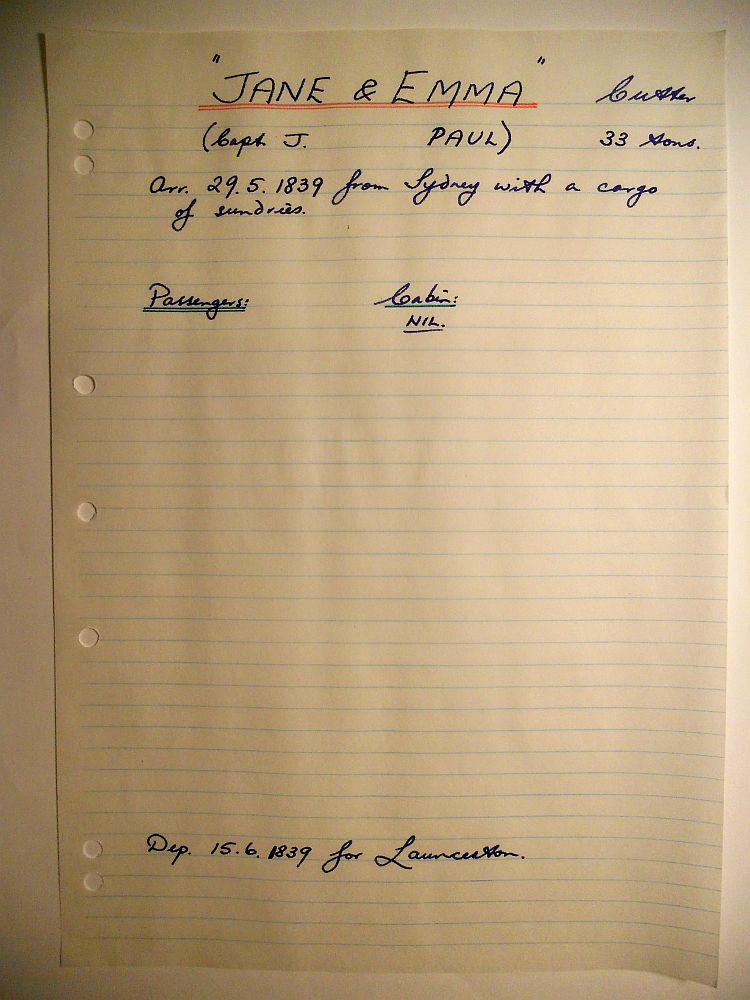 "JANE & EMMA" Cutter
(Capt J. PAUL) 33 tons.
Arr. 29.5.1839 from Sydney with a cargo
of sundries.
Passengers: Cabin:
NIL.
Dep. 15.6.1839 for Launceston.